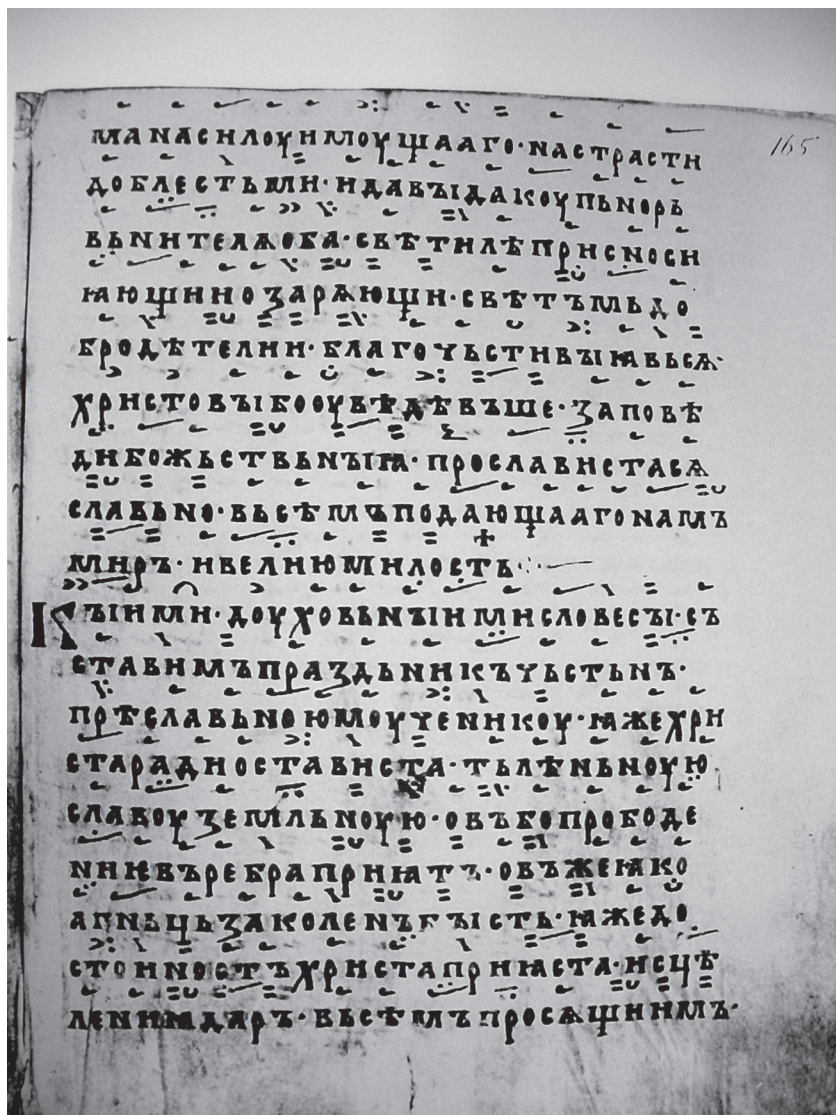 165
маначилоуимоущааго·настрасти
доблестьми·идавъідакоупьноръ
вьнителѧоба·свѣтилѣприсноси
ꙗющиинозарѧющи·свѣтъмьдо
бродѣтелии·благочьстивъіꙗвьсѧ·
христовъібооувѣдѣвъше·заповѣ
дибожьствьнъіꙗ·прославистасѧ
славьно·вьсѣмъподающаагонамъ
миръ·ивелиюмилость⁘
Къіими·доуховьнъіимисловесъі·съ
ставимъпраздьникъчьстьнъ·
прѣславьноюмоученикоу·ꙗжехри
старадиостависта·тьлѣньноую
славоуземльноую·овъбопрободе
ниѥвъребраприꙗтъ·овъжеꙗко
агньцьзаколенъбъість·ꙗжедо
стоиностъхристаприꙗста·исцѣ
лениꙗдаръ·вьсѣмъпросѧщиимъ·